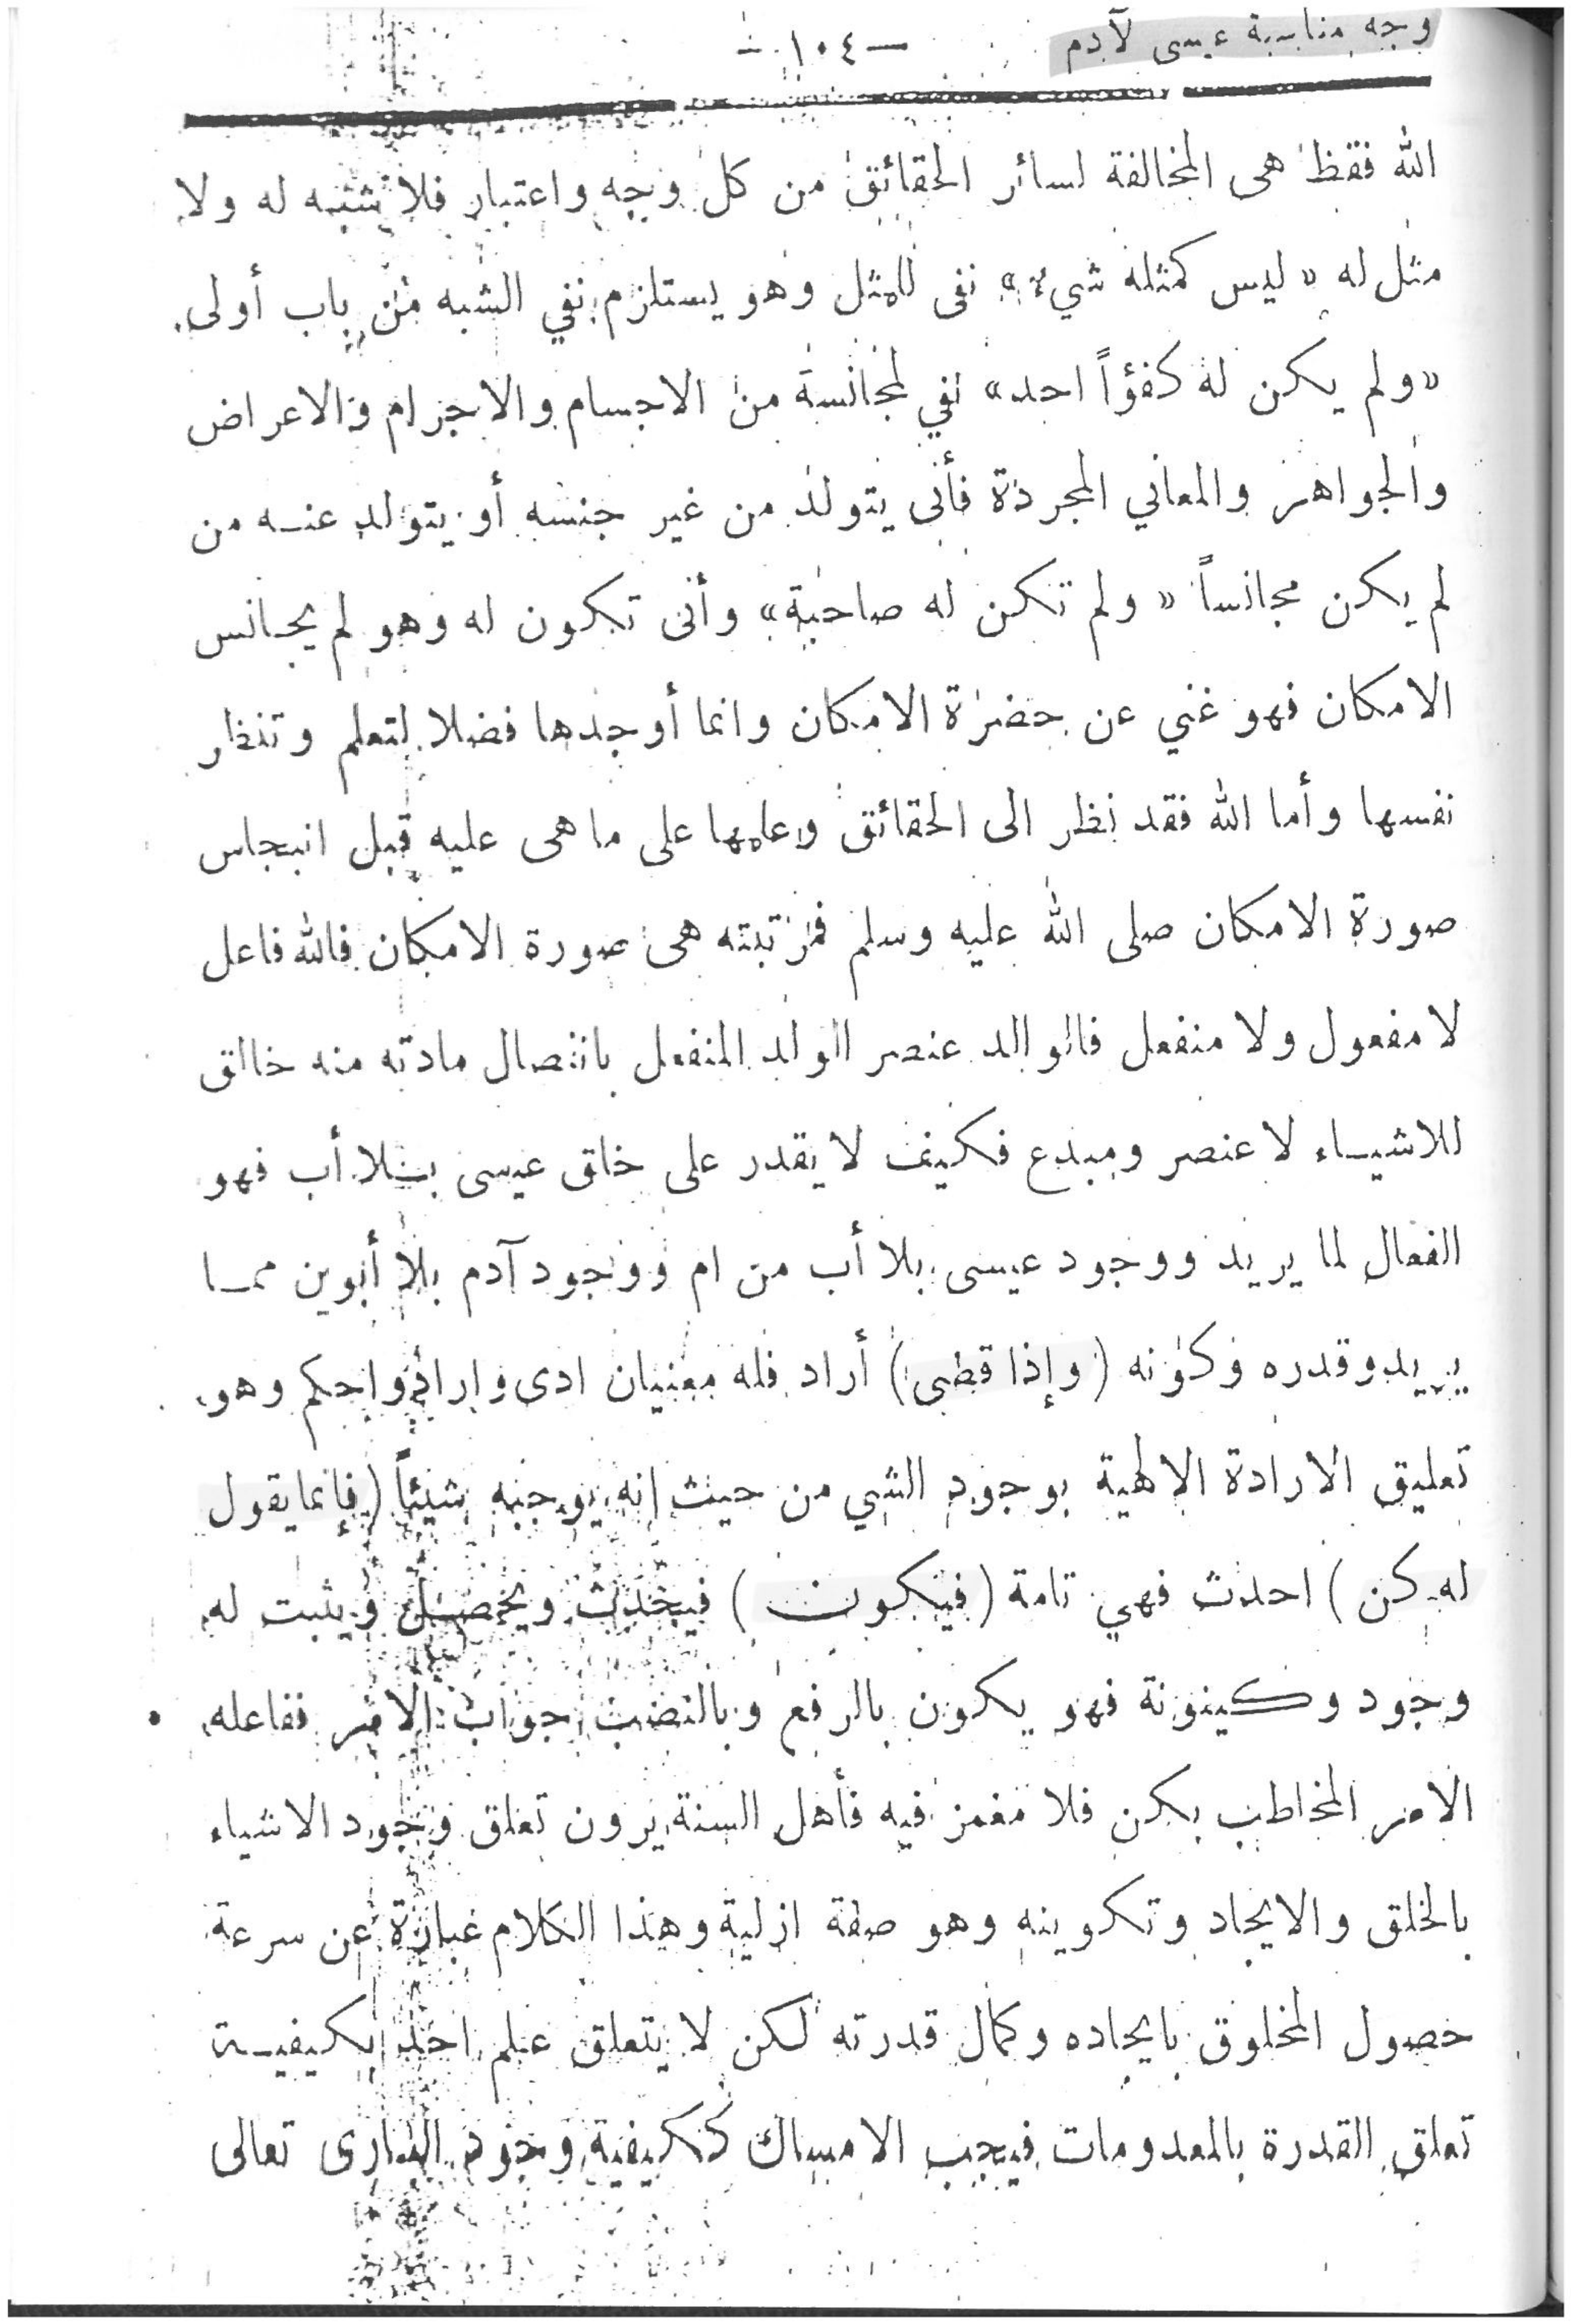 وجه مناسبة عيسى لآدم
— ١٠٤ —
الله فقط هى المخالفة لسائر الحقائق من كل وجه واعتبار فلا شبه له ولا
مثل له « ليس كمثله شيء » نفى للمثل وهو يستلزم نفي الشبه من باب أولى.
« ولم يكن له كفؤاً احد » نفي لمجانسة من الاجسام والاجرام والاعراض
والجواهر والمعاني المجردة فأنى يتولد من غير جنسه أو يتولد عنه من
لم يكن مجانساً « ولم تكن له صاحبة » وأنى تكون له وهو لم يجانس
الامكان فهو غني عن حضرة الامكان وانما أوجدها فضلا لتعلم وتنظر
نفسها وأما الله فقد نظر الى الحقائق وعلمها على ما هى عليه قبل انبجاس
صورة الامكان صلى الله عليه وسلم فمرتبته هى صورة الامكان فالله فاعل
لا مفعول ولا منفعل فالوالد عنصر الولد المنفعل بانتصال مادته منه خالق
للاشياء لا عنصر ومبدع فكيف لا يقدر على خلق عيسى بلا أب فهو
الفعال لما يريد ووجود عيسى بلا أب من ام ووجود آدم بلا أبوين مما
يريد وقدره وكونه ( وإذا قضى ) أراد فله معنيان ادى واراد واحكم وهو
تعليق الارادة الالهية بوجود الشي من حيث انه يوجبه شيئاً ( فإنما يقول
له كن ) احدث فهي تامة ( فيكون ) فيحدث ويحصل ويثبت له
وجود وكينونة فهو يكون بالرفع وبالنصب جواب الامر ففاعله
الامر المخاطب بكن فلا مغمز فيه فأهل السنة يرون تعلق وجود الاشياء
بالخلق والايجاد وتكوينه وهو صفة ازلية وهذا الكلام عبارة عن سرعة
حصول المخلوق بايجاده وكمال قدرته لكن لا يتعلق علم احد بكيفية
تعلق القدرة بالمعدومات فيجب الامساك ككيفية وجود البارى تعالى